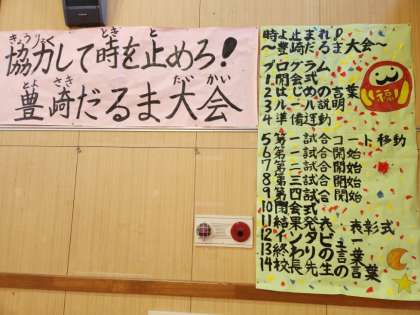 きょうりょく とき と
協力して時を止めろ!
とよ さき たい かい
豊崎だるま大会
時よ止まれ!
~豊崎だるま大会~
プログラム
1 開会式
2 はじめの言葉
3 ルール説明
4 準備運動
5 第一試合コート移動
6 第一試合開始
7 第二試合開始
8 第三試合開始
9 第四試合開始
10 閉会式
11 結果発表、表彰式
12 インタビュー
13 終わりの言葉
14 校長先生の言葉
福